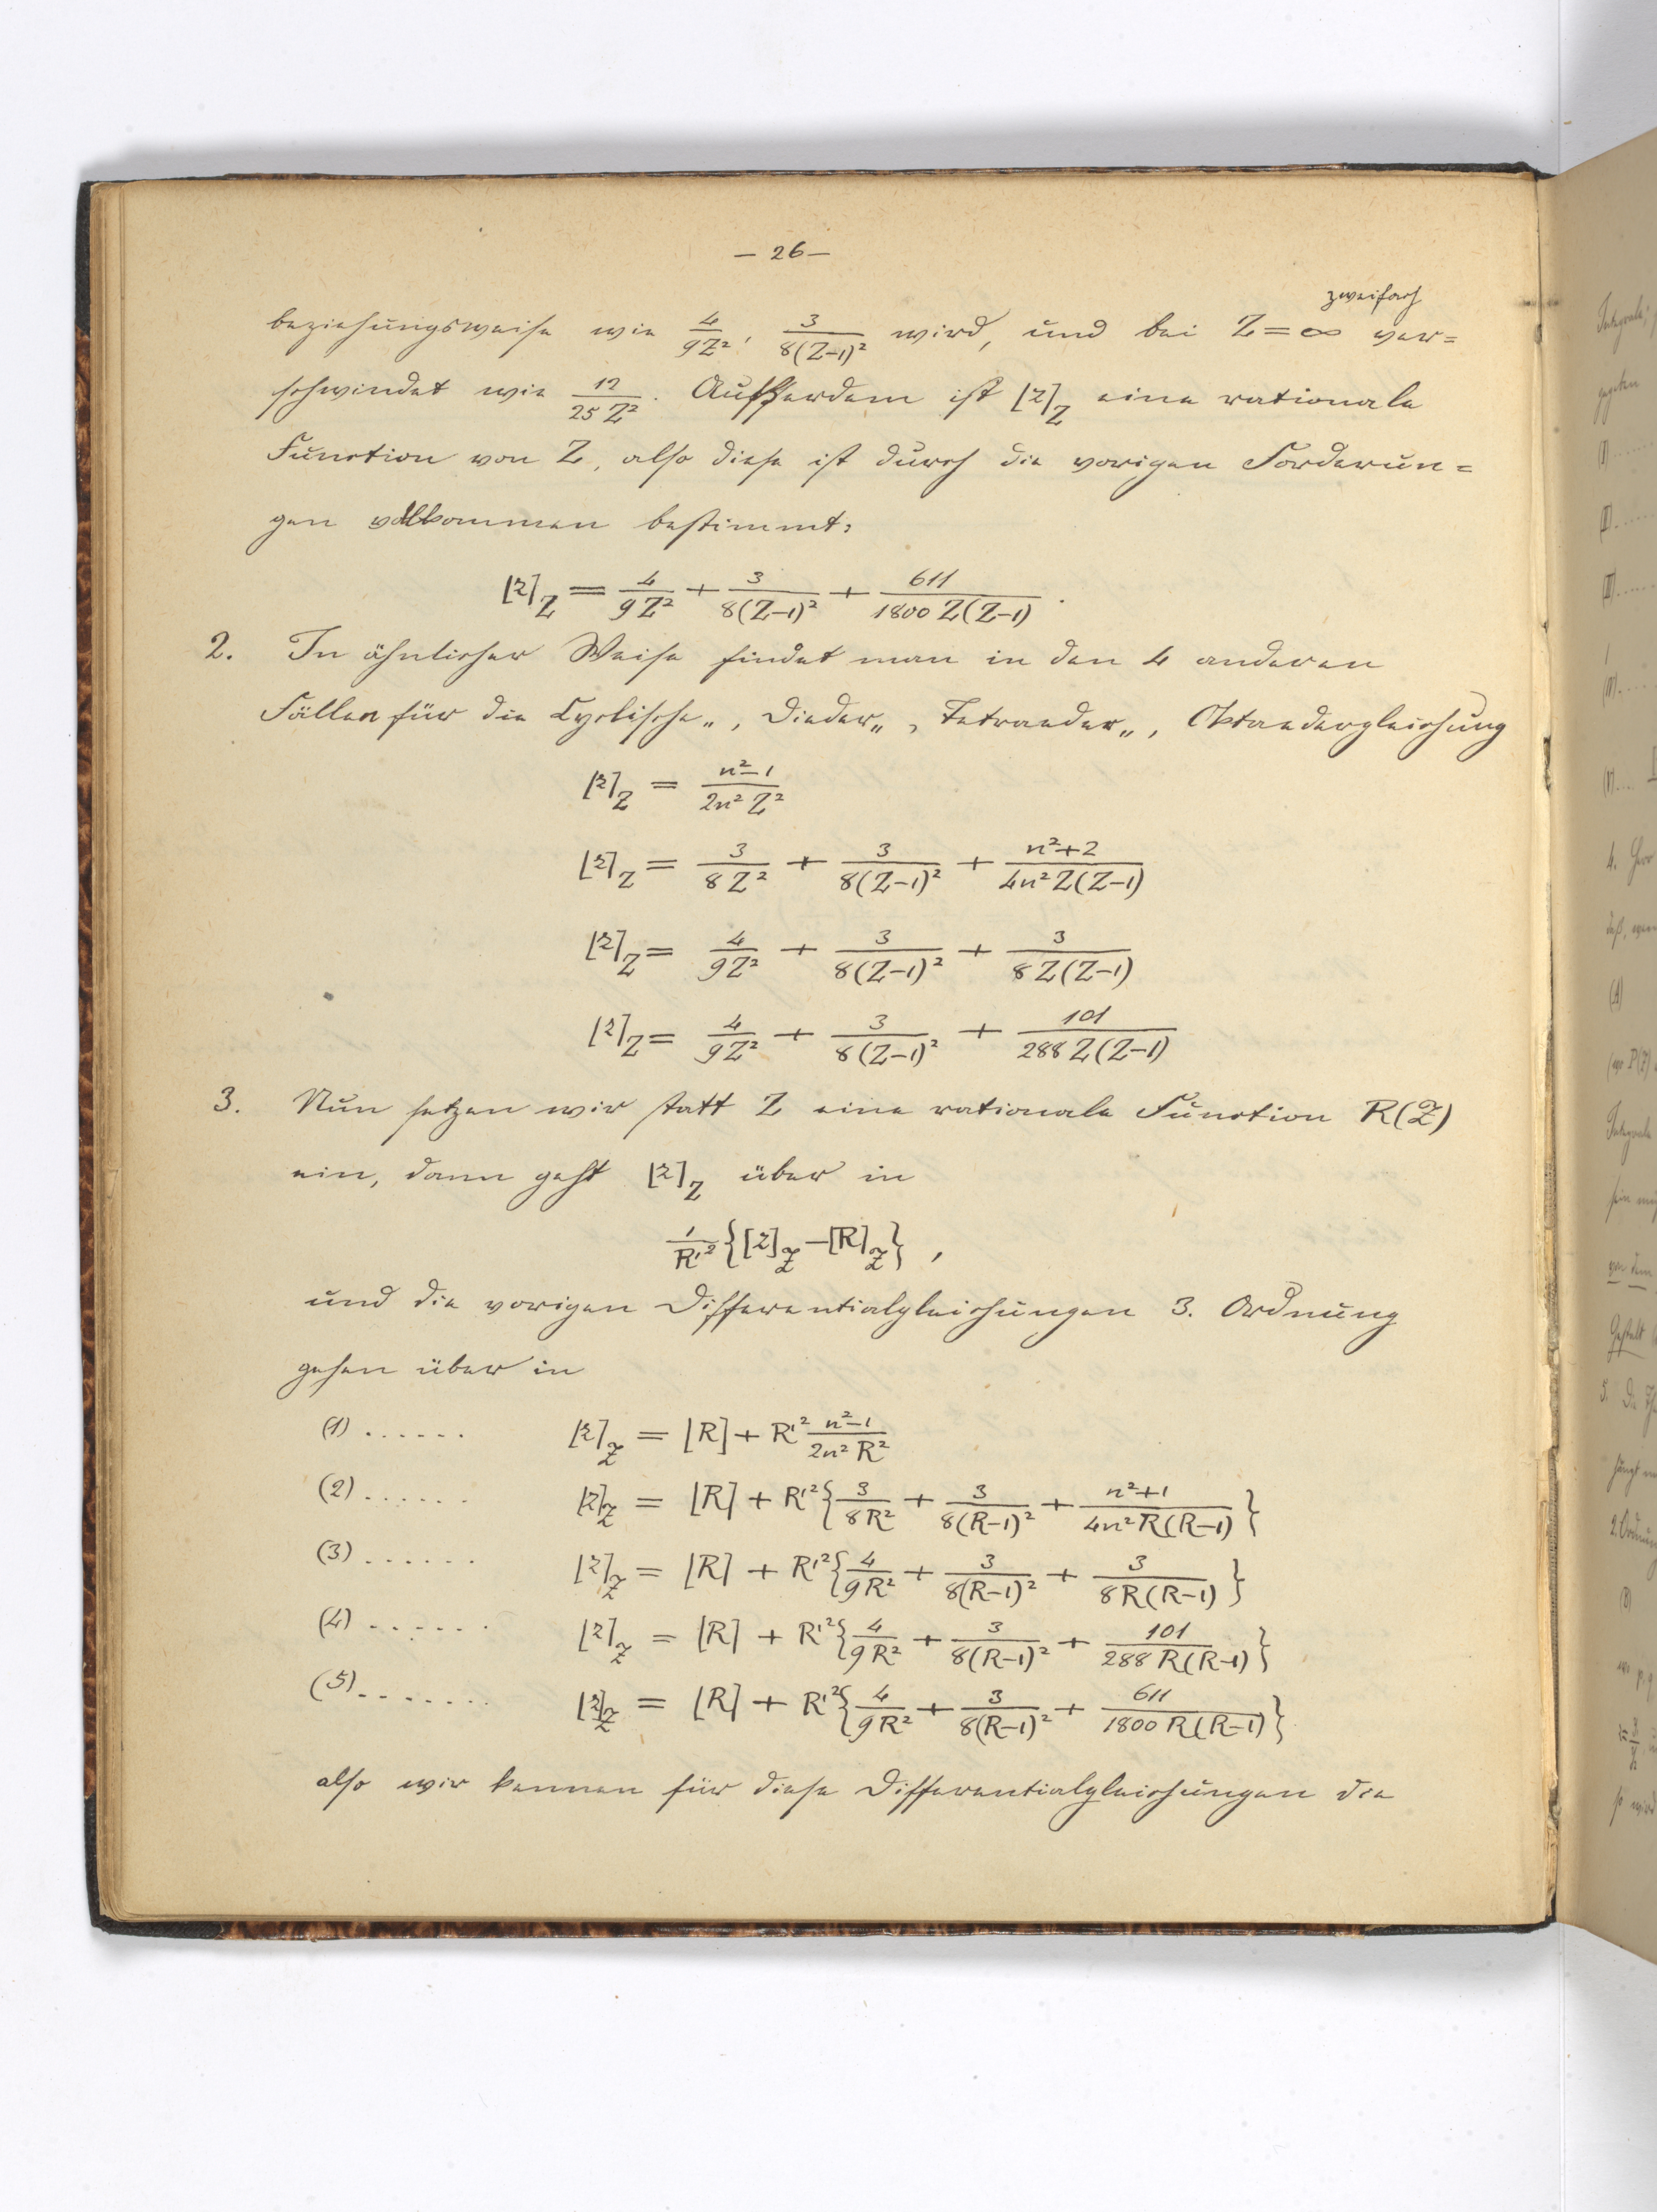 — 26 —
zweifach
beziehungsweise wie 4/9Z², 3/8(Z−1)² wird, und bei Z = ∞ ver=
schwindet wie 12/25 Z². Außerdem ist [z]_Z eine rationale
Function von Z, also diese ist durch die vorigen Forderun=
gen vollkommen bestimmt:
[z]_Z = 4/9Z² + 3/8(Z−1)² + 611/1800 Z(Z−1).
2. In ähnlicher Weise findet man in den 4 anderen
Fällen für die Cyclische„, Dieder„, Tetraeder„, Oktaedergleichung
[z]_Z = n²−1/2n² Z²
[z]_Z = 3/8Z² + 3/8(Z−1)² + n²+2/4n² Z(Z−1)
[z]_Z = 4/9Z² + 3/8(Z−1)² + 3/8Z(Z−1)
[z]_Z = 4/9Z² + 3/8(Z−1)² + 101/288 Z(Z−1)
3. Nun setzen wir statt Z eine rationale Function R(𝒵)
ein, dann geht [z]_Z über in
1/R'² {[z]_𝒵 − [R]_𝒵},
und die vorigen Differentialgleichungen 3. Ordnung
gehen über in
(1) ...... [z]_𝒵 = [R] + R'² n²−1/2n² R²
(2) ...... [z]_𝒵 = [R] + R'²{3/8R² + 3/8(R−1)² + n²+1/4n² R(R−1)}
(3) ...... [z]_𝒵 = [R] + R'²{4/9R² + 3/8(R−1)² + 3/8R(R−1)}
(4) ...... [z]_𝒵 = [R] + R'²{4/9R² + 3/8(R−1)² + 101/288 R(R−1)}
(5) ........ [z]_𝒵 = [R] + R'²{4/9R² + 3/8(R−1)² + 611/1800 R(R−1)}
also wir kennen für diese Differentialgleichungen die